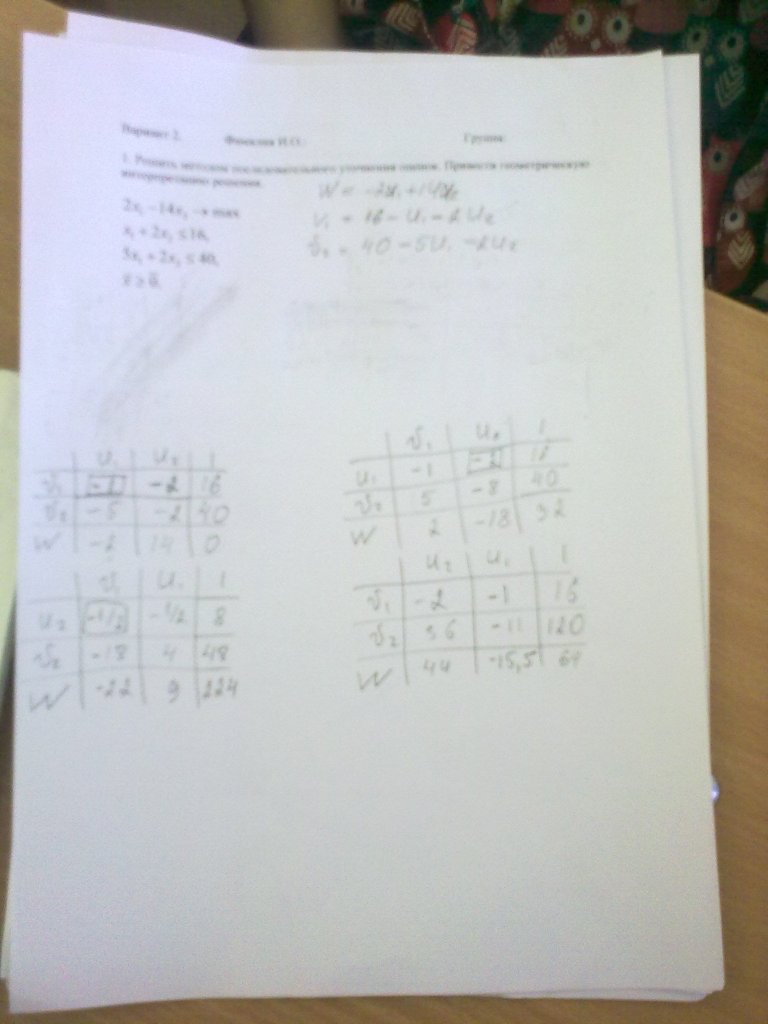 Вариант 2. Фамилия И.О.: Группа:
1. Решить методом последовательного уточнения оценок. Привести геометрическую
интерпретацию решения.
2x₁ −14x₂ → max
x₁ + 2x₂ ≤ 16,
5x₁ + 2x₂ ≤ 40,
x̄ ≥ 0̄.
W = -2u₁ + 14u₂
V₁ = 16 - U₁ - 2U₂
V₂ = 40 - 5U₁ - 2U₂
U₁ U₂ 1
V₁ -1 -2 16
V₂ -5 -2 40
W -2 14 0
V₁ U₂ 1
U₁ -1 -2 16
V₂ 5 -8 40
W 2 -18 32
V₁ U₁ 1
U₂ -1/2 -1/2 8
V₂ -18 4 48
W -22 9 224
U₂ U₁ 1
V₁ -2 -1 16
V₂ 36 -11 120
W 44 -15,5 64